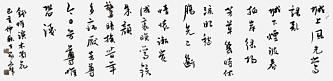 城上風光鶯
語亂
城下煙波春
拍岸綠楊
芳草幾時休
淚眼愁
腸先已斷
情懷漸覺
成衰晚鸞鏡
朱顏驚暗換
昔年
多病厭芳尊
今日芳尊惟
恐淺
錢惟演木蘭花